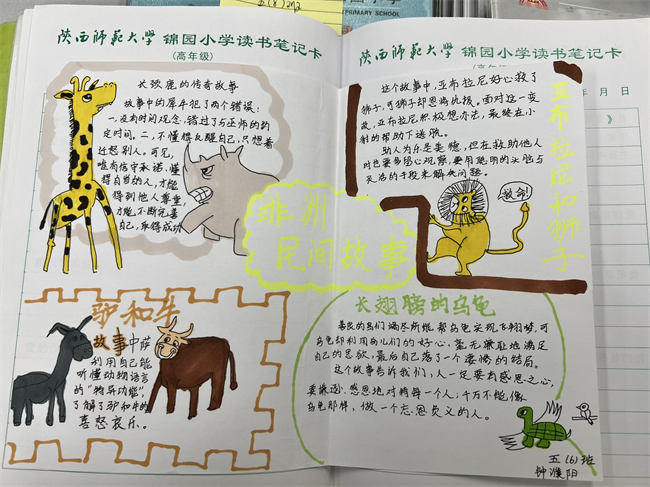 五(8)班
PRIMARY SCHOOL
陕西师范大学 锦园小学读书笔记卡
(高年级)
长颈鹿的传奇故事
故事中的犀牛犯了两个错误:
一、没有时间观念,错过了与巫师的约
定时间。二、不懂得反醒自己,只想着
迁怒别人。可见,
唯有信守承诺、懂
得自省的人,才能
得到他人尊重,
才能不断完善
自己,取得成功
陕西师范大学 锦园小学读书笔记卡
(高年级)
年 月 日
》
这个故事中,亚布拉尼好心救了
狮子,可狮子却恩将仇报。面对这一变
故,亚布拉尼积极想办法,最终在小
豺的帮助下逃脱。
助人为乐是美德,但在救助他人
时也要多留心观察,要用聪明的头脑与
灵活的手段来解决问题。
亚布拉尼和狮子
救命!
非洲
民间故事
驴和牛
故事中萨
利用自己能
听懂动物语言
的“特异功能”,
了解了驴和牛的
喜怒哀乐。
长翅膀的乌龟
善良的鸟们竭尽所能帮乌龟实现飞翔梦,可
乌龟却利用鸟儿们的好心,毫无廉耻地满足
自己的私欲,最后自己落了一个凄惨的结局。
这个故事告诉我们,人一定要有感恩之心,
要谦逊、感恩地对待每一个人;千万不能像
乌龟那样,做一个忘恩负义的人。
五(6)班
钟濮阳